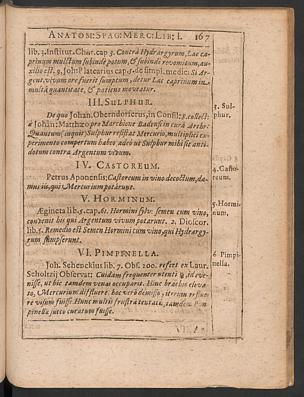 ANATOM: SPAG: MERC: LIB; I. 167
lib. 5. Institut. Chur. cap 3. Contra Hydrargyrum, Lac ca-
prinum multum subinde potum, & subinde revomitum, au-
xilio est. 9. Joh: Platearius cap. 5. de simpl. medic: Si Ar-
gent. vivum ore fuerit sumptum, detur Lac caprinum in
multâ quantitate, & patiens moveatur.
III. SULPHUR.
De quo Johan. Oberndorferus, in Consil: à
Johan: Matthæo pro Marchione Badensi in curâ Arthr:
Quantum (inquit) Sulphur resistat Mercurio, multiplici ex-
perimento compertum habeo, adeò ut Sulphur mihi sit an-
tidotum contra Argentum vivum.
3. Sul-
phur.
IV. CASTOREUM.
Petrus Aponensis; Castoreum in vino decoctum, da-
mus iis, qui Mercurium potârunt.
4. Casto-
reum.
V. HORMINUM.
Ægineta lib. 5. cap. 61. Hormini sylv: semen cum vino,
convenit his qui Argentum vivum potarunt. 2. Dioscor.
lib. 5. Remedio est Semen Hormini cum vino, qui Hydrargy-
rum sumpserunt.
5. Hormi-
num.
VI. PIMPINELLA.
Joh. Schenckius lib. 7. Obs. 200. refert ex Laur.
Scholtzij Observat: Cuidam frequenter urenti
ut hic tandem venas occuparit. Hinc brachio eleva-
to, Mercurium difluere. hoc verò demisso, iterum reflue-
re visum fuisse. Hunc multis frustrà tentatis, tandem Pim-
pinellæ succo curatum fuisse.
6 Pimpi-
nella.